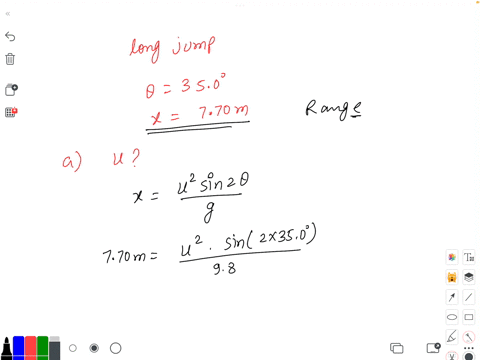 long jump
θ = 35.0°
x = 7.70 m
Range
a) u?
x = u² sin 2θ / g
7.70 m = u² · sin(2×35.0°) / 9.8